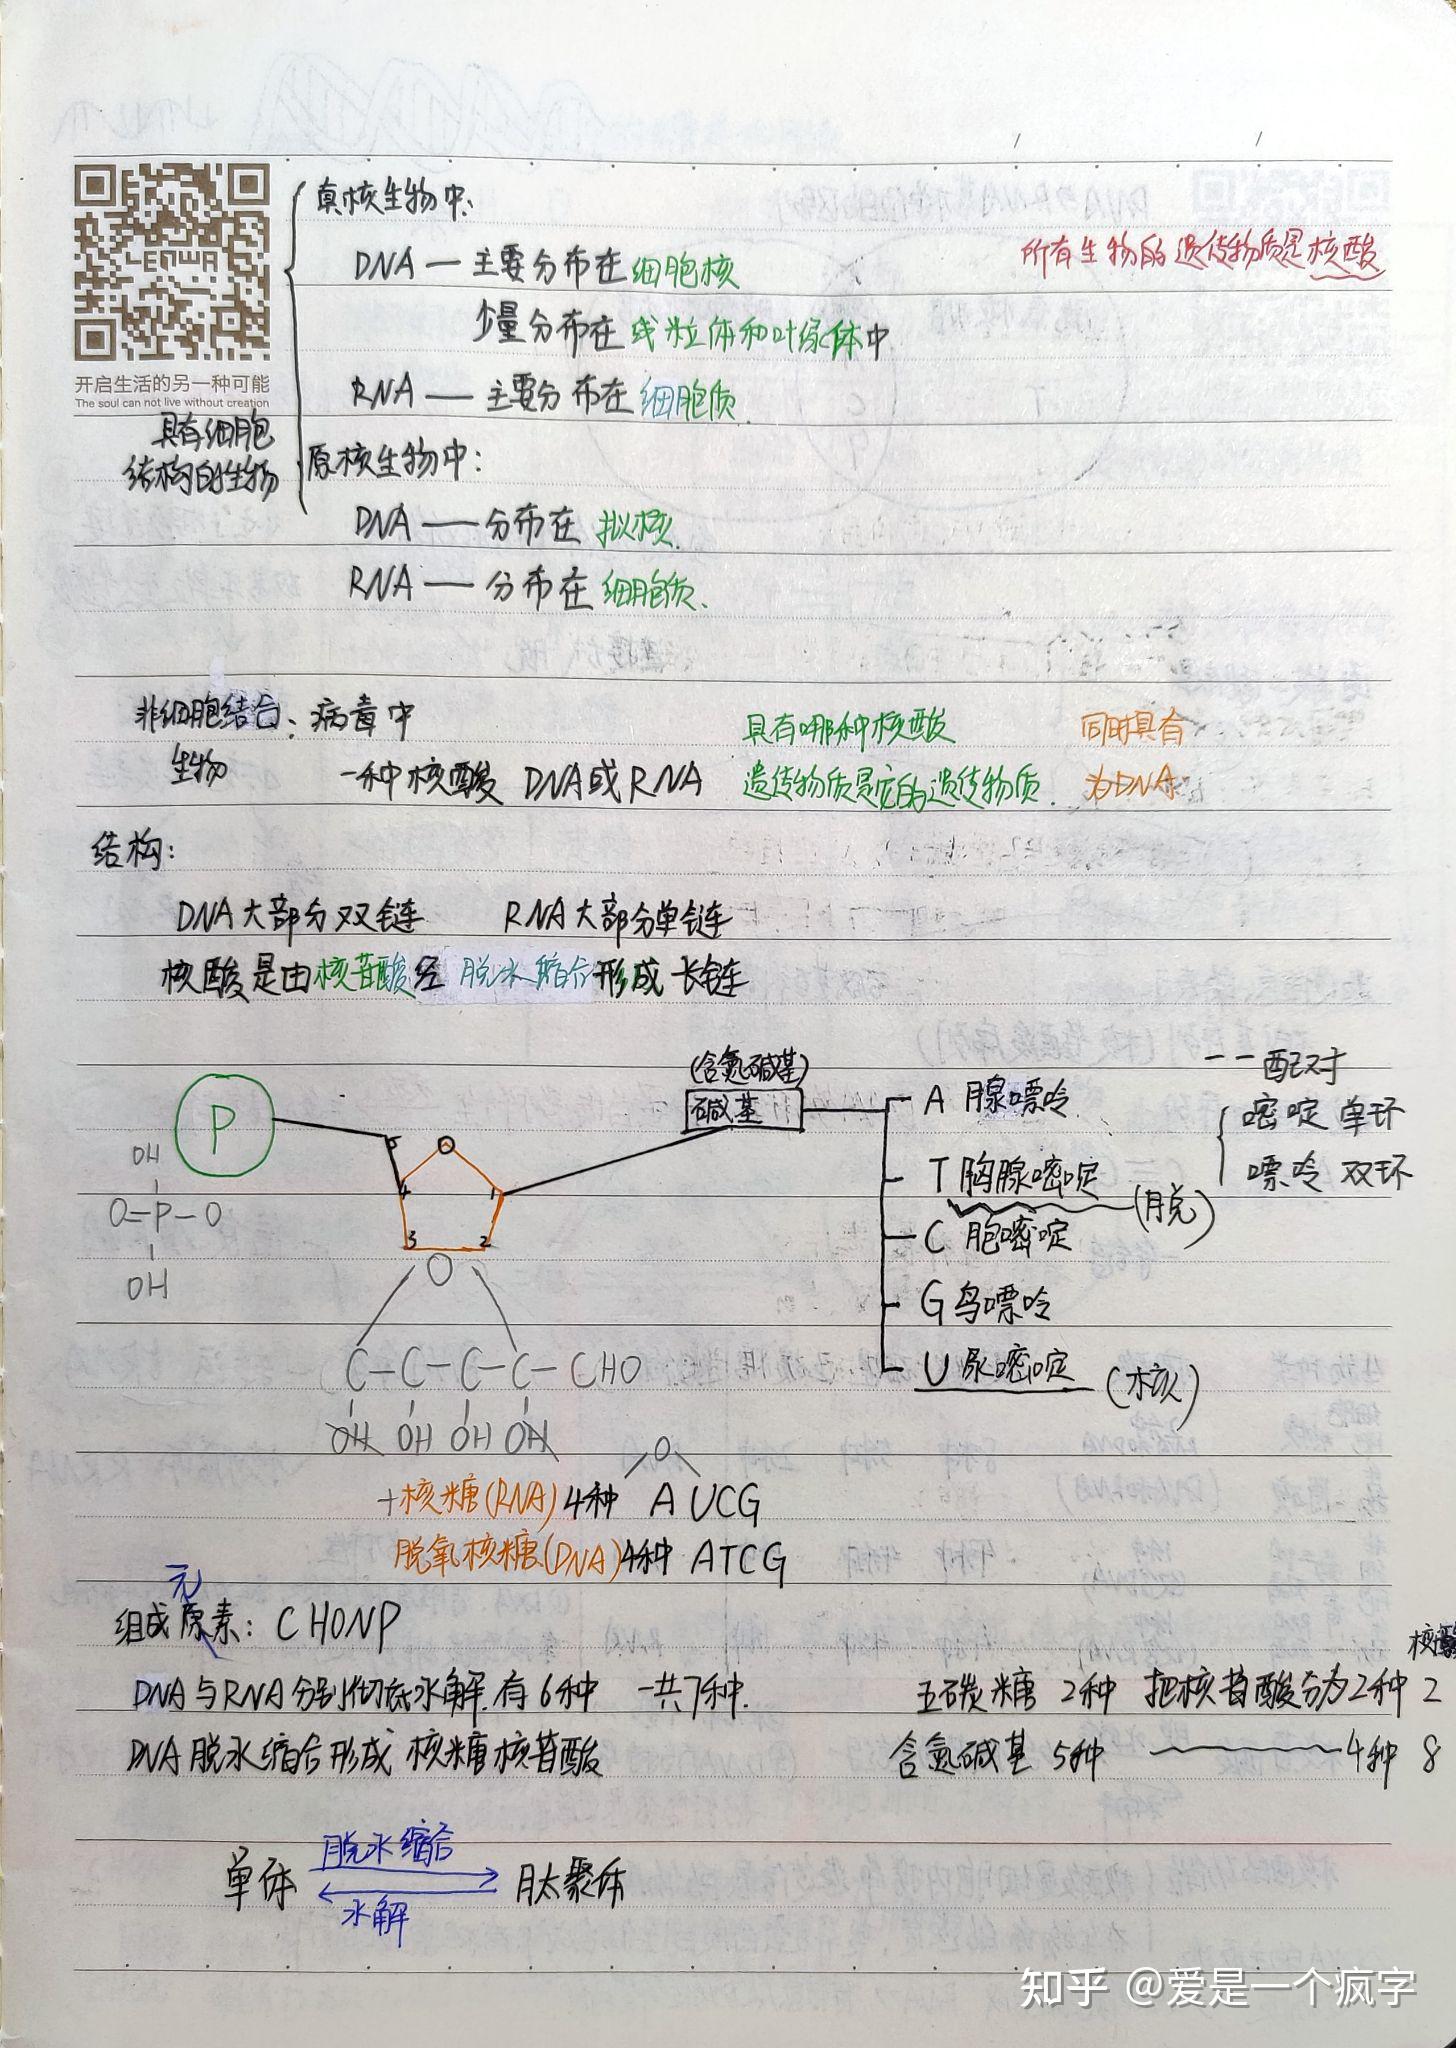 LENWA
开启生活的另一种可能
The soul can not live without creation
具有细胞
结构的生物
真核生物中:
DNA — 主要分布在细胞核
少量分布在线粒体和叶绿体中
RNA — 主要分布在细胞质.
所有生物的遗传物质是核酸
原核生物中:
DNA — 分布在 拟核.
RNA — 分布在细胞质.
非细胞结合: 病毒中
生物 一种核酸 DNA或RNA
具有哪种核酸
遗传物质是它的遗传物质.
同时具有
为DNA
结构:
DNA大部分双链 RNA大部分单链
核酸是由核苷酸经 脱水缩合形成 长链
P
OH
O=P-O
OH
5 O 4 1 3 2
(含氮碱基)
碱基
A 腺嘌呤
T 胸腺嘧啶 (脱)
C 胞嘧啶
G 鸟嘌呤
U 尿嘧啶 (核)
一一配对
嘧啶 单环
嘌呤 双环
O
C-C-C-C-CHO
OH OH OH OH
O
+核糖(RNA)4种 A UCG
脱氧核糖(DNA)4种 ATCG
元
组成原素: CHONP
DNA与RNA分别彻底水解.有6种 一共7种.
DNA脱水缩合形成 核糖核苷酸
核酸
五碳糖 2种 把核苷酸分为2种 2
含氮碱基 5种 4种 8
单体 脱水缩合 肽聚体
水解
知乎 @爱是一个疯字